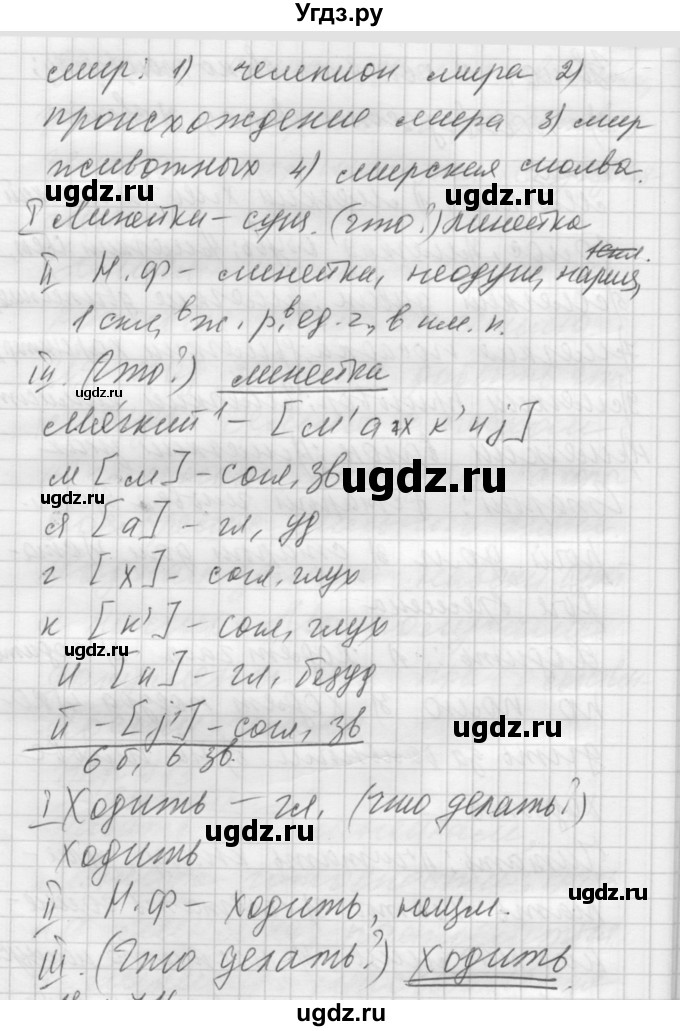 Угдз.ру
мир: 1) чемпион мира 2)
происхождение мира 3) мир
животных 4) мирская молва.
I Линейки – сущ. (что?) линейка
1 скл.
II Н.Ф – линейка, неодуш, нариц,
1 скл, в ж. р, в ед. ч, в им. п.
III. (Что?) линейка
Мягкий – [м'ах к'иj]
м [м] – согл, зв
я [а] – гл, уд
г [х] – согл, глух
к [к'] – согл, глух
и [и] – гл, безуд
й – [j'] – согл, зв
6 б, 6 зв.
I Ходить – гл, (что делать?)
ходить
II Н.Ф – ходить,
III. (Что делать?) ходить
ugdz.ru
ugdz.ru
ugdz.ru
ugdz.ru
ugdz.ru
ugdz.ru
ugdz.ru
ugdz.ru
ugdz.ru
ugdz.ru
ugdz.ru
ugdz.ru